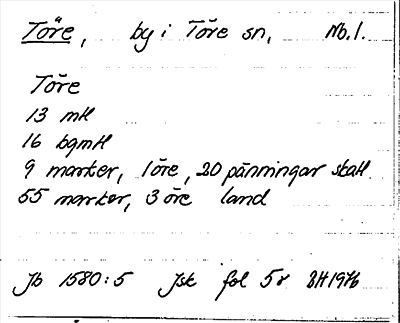 Töre, by i Töre sn, Nb.l.
Töre
13 mtl
16 bgmtl
9 marker, 1öre, 20 pänningar skatt
55 marker, 3 öre land
Jb 1580:5 Jsk fol 5v BH1976